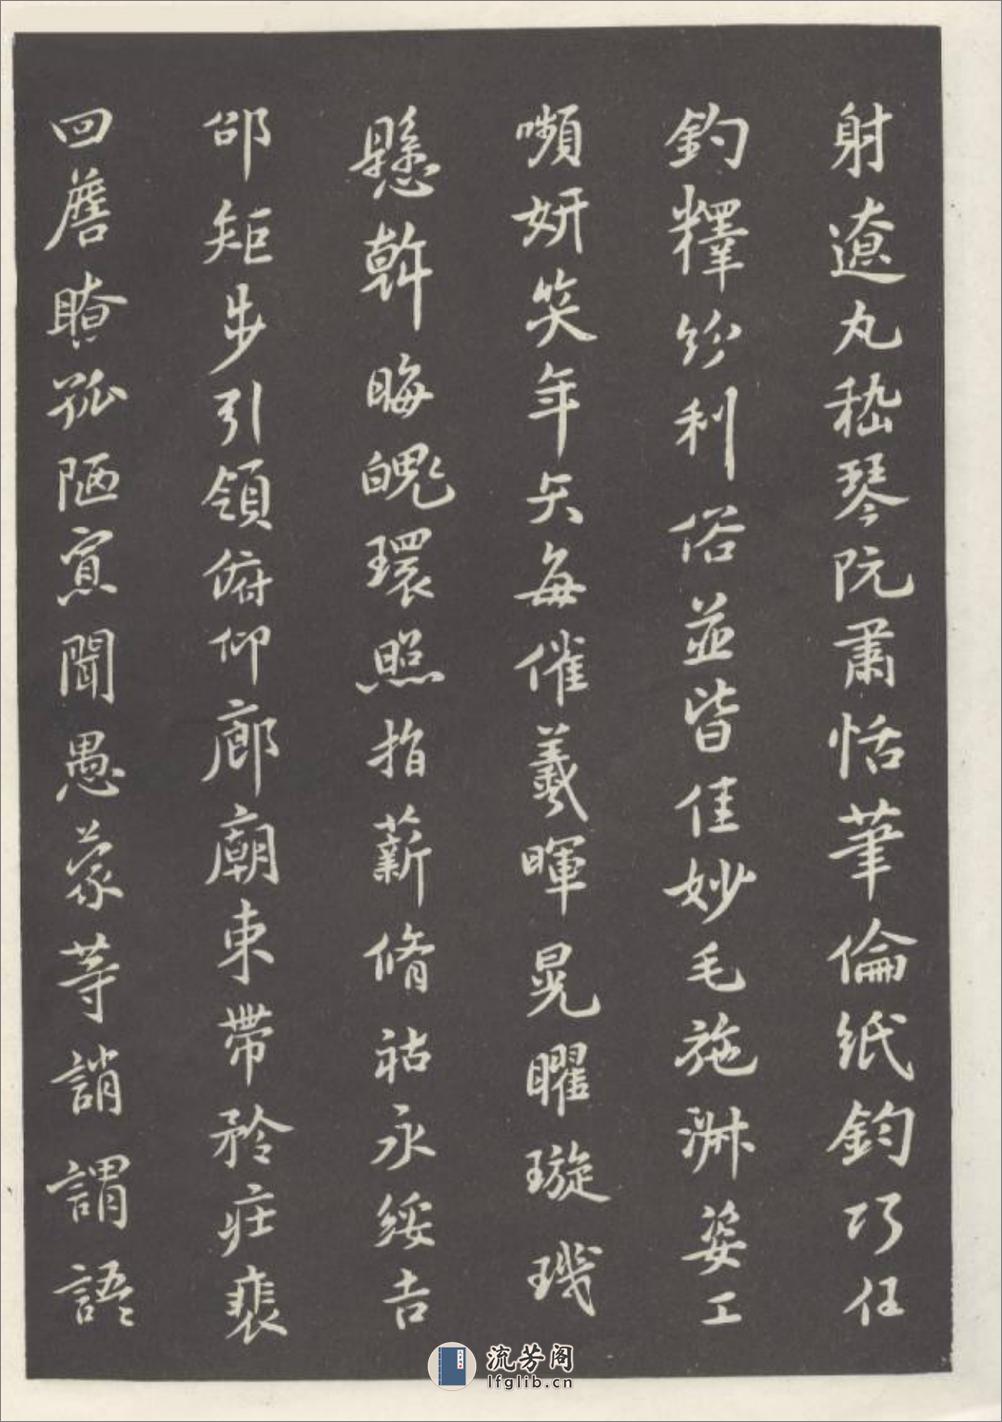 射遼丸嵇琴阮肅恬筆倫紙鈞巧任
釣釋紛利俗並皆佳妙毛施淑姿工
嚬妍笑年矢每催羲暉晃曜璇璣
懸斡晦魄環照指薪脩祜永綏吉
邵矩步引領俯仰廊廟束帶矜莊裴
回瞻眺孤陋寡聞愚蒙等誚謂語
流芳阁
lfglib.cn